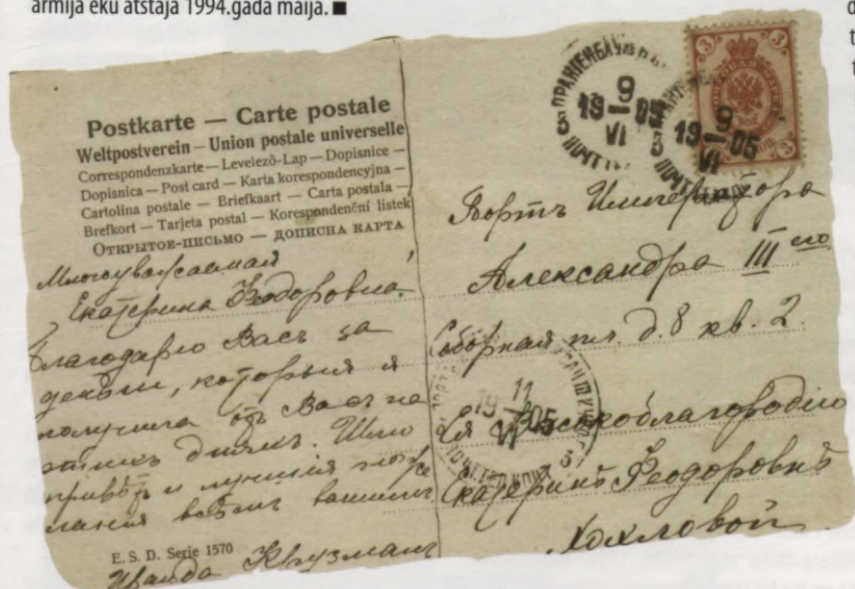 armija ēku atstāja 1994.gada maijā. ■
Postkarte — Carte postale
Weltpostverein — Union postale universelle
Correspondenzkarte — Levelező-Lap — Dopisnice —
Dopisnica — Post card — Karta korespondencyjna —
Cartolina postale — Briefkaart — Carta postala —
Brefkort — Tarjeta postal — Korespondenční listek
Открытое-письмо — дописна карта
Многоуважаемая
Екатерина Федоровна!
Благодарю Васъ за
деньги, которыя я
получила отъ Васъ на
этихъ дняхъ. Шлю
привѣтъ и лучшія поже
лания всѣмъ вашимъ
E. S. D. Serie 1570
Крузманъ
3 3
ОРАНІЕНБАУМЪ
9
19 — 05
VI
ПОЧТ
9
19 — 05
VI
Портъ Императора
Александра III его
Соборная пл. д. 8 кв. 2.
11
19 — 05
VI
Ея Высокоблагородію
Екатеринѣ Феодоровнѣ
Хохловой